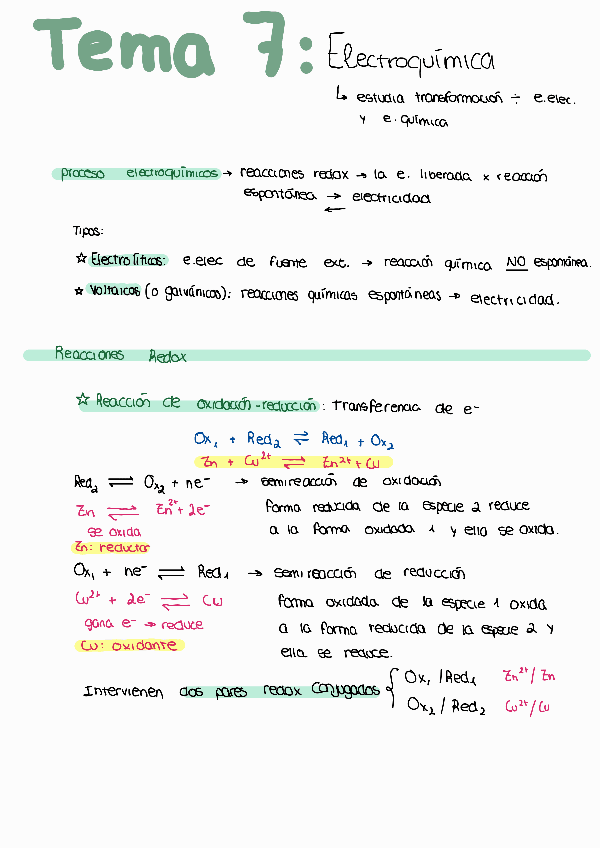 Tema 7: Electroquímica
↳ estudia transformación ÷ e.elec.
y e. química
proceso electroquímicos → reacciones redox → la e. liberada x reacción
espontánea → electricidad
←
Tipos:
☆ Electrolíticos: e.elec de fuente ext. → reacción química NO espontánea.
☆ Voltaicos (o galvánicos): reacciones químicas espontáneas → electricidad.
Reacciones Redox
☆ Reacción de oxidación-reducción: transferencia de e⁻
Ox₁ + Red₂ ⇌ Red₁ + Ox₂
Zn + Cu²⁺ ⇌ Zn²⁺ + Cu
Red₂ ⇌ Ox₂ + ne⁻ → semireacción de oxidación
Zn ⇌ Zn²⁺ + 2e⁻ forma reducida de la especie 2 reduce
se oxida a la forma oxidada 1 y ella se oxida.
Zn: reductor
Ox₁ + ne⁻ ⇌ Red₁ → semireacción de reducción
Cu²⁺ + 2e⁻ ⇌ Cu forma oxidada de la especie 1 oxida
gana e⁻ → reduce a la forma reducida de la especie 2 y
Cu: oxidante ella se reduce.
Intervienen dos pares redox conjugados { Ox₁ / Red₁ Zn²⁺ / Zn
Ox₂ / Red₂ Cu²⁺ / Cu